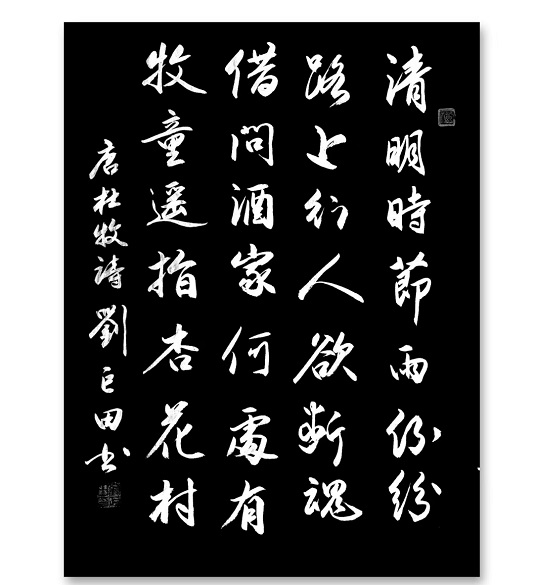 清明時節雨份紛
路上行人欲断魂
借問酒家何處有
牧童遥指杏花村
唐杜牧詩劉巨田书